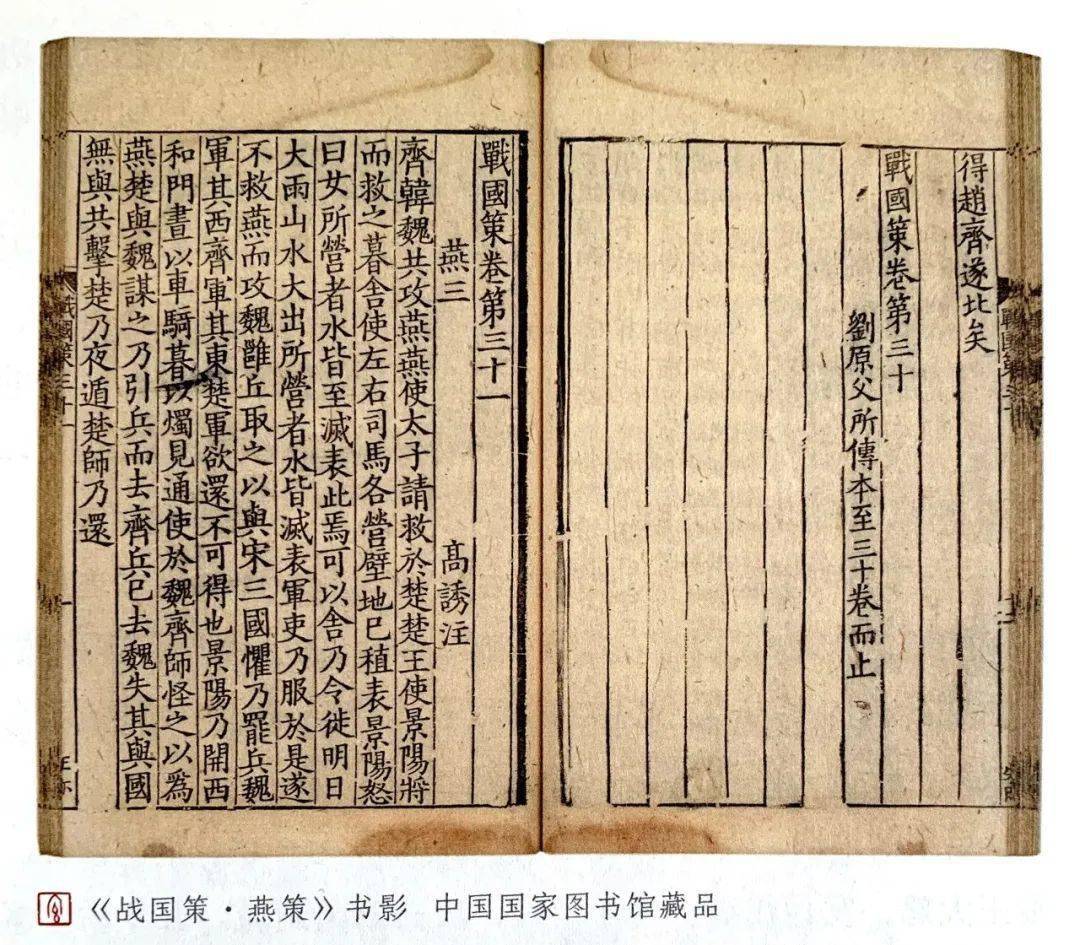 得趙齊遂北矣
戰國策卷第三十
劉原父所傳本至三十卷而止
戰國策卷第三十一
燕三 高誘注
齊韓魏共攻燕燕使太子請救於楚楚王使景陽將
而救之暮舍使左右司馬各營壁地已稙表景陽怒
曰女所營者水皆至滅表此焉可以舍乃令徙明日
大雨山水大出所營者水皆滅表軍吏乃服於是遂
不救燕而攻魏雝丘取之以與宋三國懼乃罷兵魏
軍其西齊軍其東楚軍欲還不可得也景陽乃開西
和門晝以車騎暮以燭見通使於魏齊師怪之以為
燕楚與魏謀之乃引兵而去齊兵已去魏失其與國
無與共擊楚乃夜遁楚師乃還
戰國策三十一
《战国策·燕策》书影 中国国家图书馆藏品